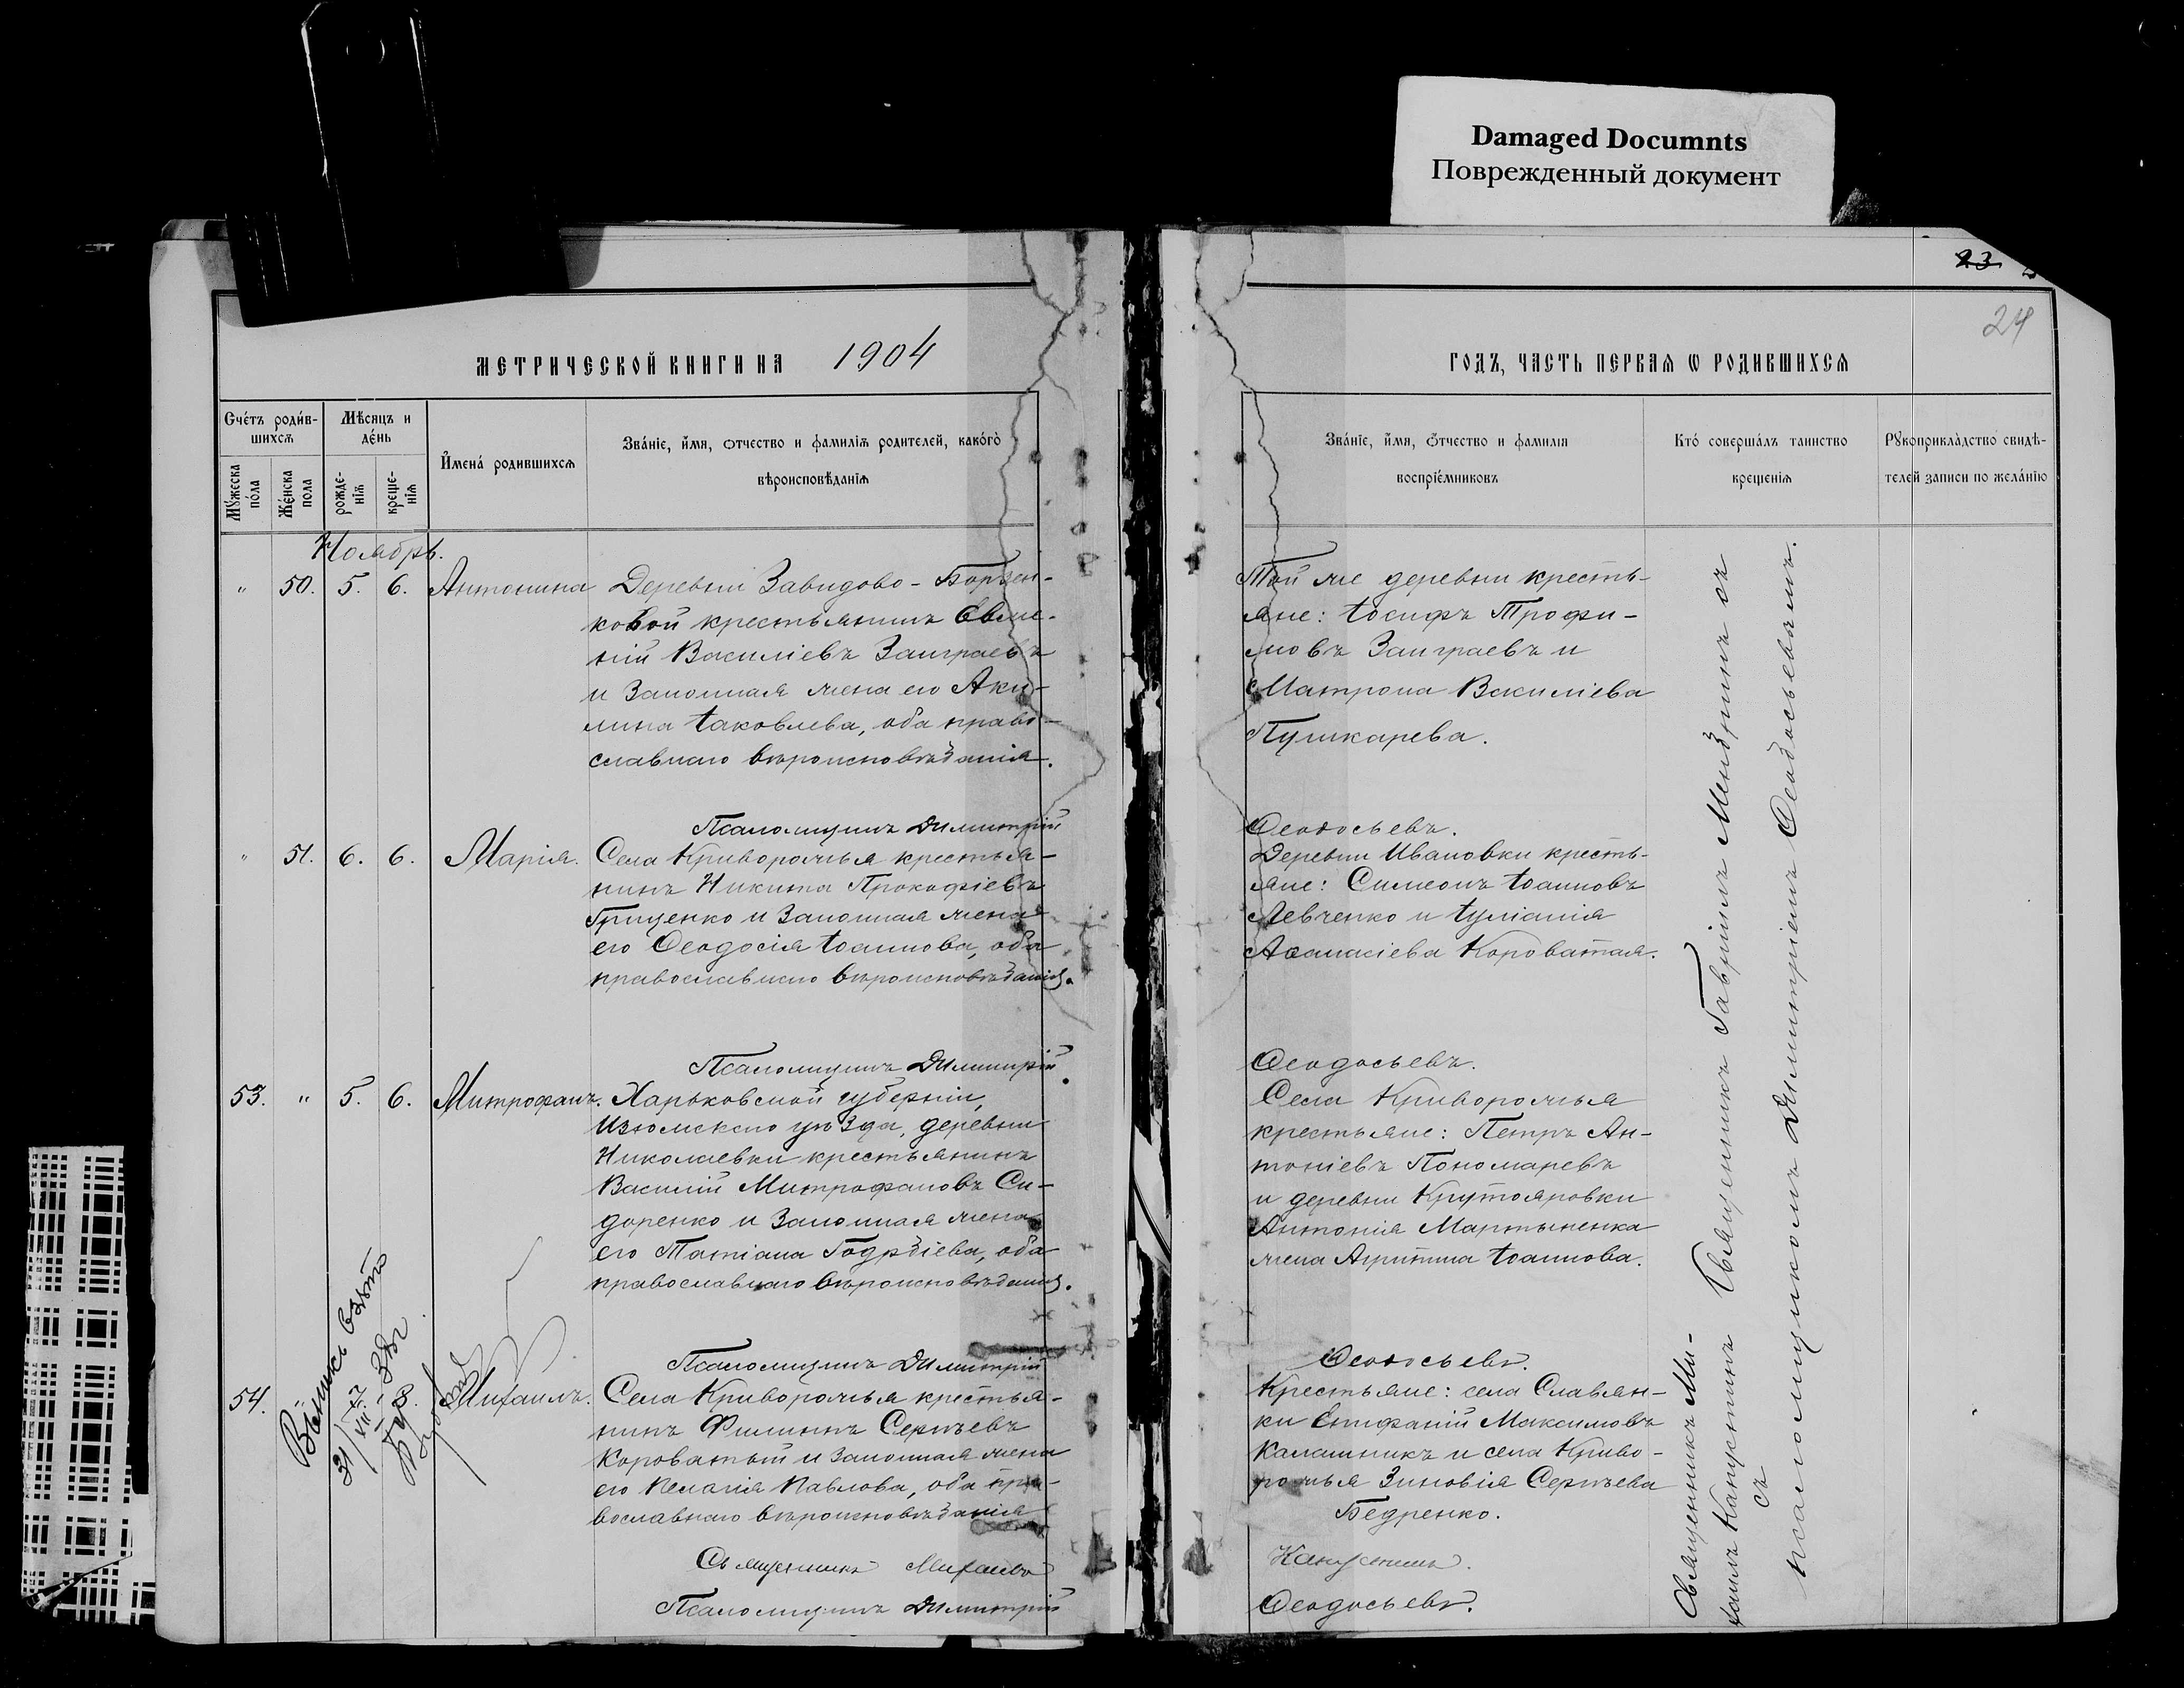 Damaged Documnts
Поврежденный документ
23
24
МЕТРИЧЕСКОЙ КНИГИ НА 1904
ГОДЪ, ЧАСТЬ ПЕРВАЯ Ѡ РОДИВШИХСЯ
Счéтъ роди́в-
шихсѧ
Мꙋ́жеска
по́ла
Же́нска
пола
Мѣсяцъ и
де́нь
рожде-
нїѧ
креще-
нїѧ
И҆мена́ родившихсѧ
Зва́нїе, и҆́мя, ѻтчество и фамилїѧ родителей, како́гѡ
вѣроисповѣданїѧ
Зва́нїе, и҆́мя, ѻтчество и фамилїя
воспрїе́мниковъ
Кто́ соверша́лъ таинство
крещенїѧ
Рꙋкоприкла́дство свидѣ-
телей записи по жела́нїю
Ноябрь.
" 50. 5. 6. Антонина
Деревни Завидово-Борзен-
ковой крестьянинъ Евме-
ній Василіевъ Заиграевъ
и законная жена его Аки-
лина Іаковлева, оба право-
славнаго вѣроисповѣданія.
Той же деревни кресть-
яне: Іосифъ Трофи-
мовъ Заиграевъ и
Матрона Василіева
Пушкарева.
Псаломщикъ Димитрій Ѳеодосьевъ.
" 51. 6. 6. Марія.
Села Криворожья крестья-
нинъ Никита Прокофіевъ
Гриценко и законная жена
его Ѳеодосія Іоаннова, оба
православнаго вѣроисповѣданія.
Деревни Ивановки кресть-
яне: Симеонъ Іоанновъ
Левченко и Іуліанія
Аѳанасіева Короватая.
Псаломщикъ Димитрій Ѳеодосьевъ.
53. " 5. 6. Митрофанъ.
Харьковской губерніи,
Изюмскаго уѣзда, деревни
Николаевки крестьянинъ
Василій Митрофановъ Си-
доренко и законная жена
его Татіана Гордѣева, оба
православнаго вѣроисповѣданія.
Села Криворожья
крестьяне: Петръ Ан-
тоніевъ Пономаревъ
и деревни Крутояровки
Антонія Мартыненка
жена Агриппина Іоаннова.
Псаломщикъ Димитрій Ѳеодосьевъ.
54. Михаилъ.
Села Криворожья крестья-
нинъ Филиппъ Сергѣевъ
Короватый и законная жена
его Пелагія Павлова, оба пра-
вославнаго вѣроисповѣданія
Крестьяне: села Славян-
ки Епифаній Максимовъ
Калашникъ и села Криво-
рожья Зиновія Сергѣева
Бедренко.
Священникъ Михаилъ Капустинъ.
Псаломщикъ Димитрій Ѳеодосьевъ.
Выпись взято
31/VII
Священникъ Гавріилъ съ
псаломщикомъ Димитріемъ Ѳеодосьевымъ.
Священникъ Ми-
хаилъ Капустинъ
съ